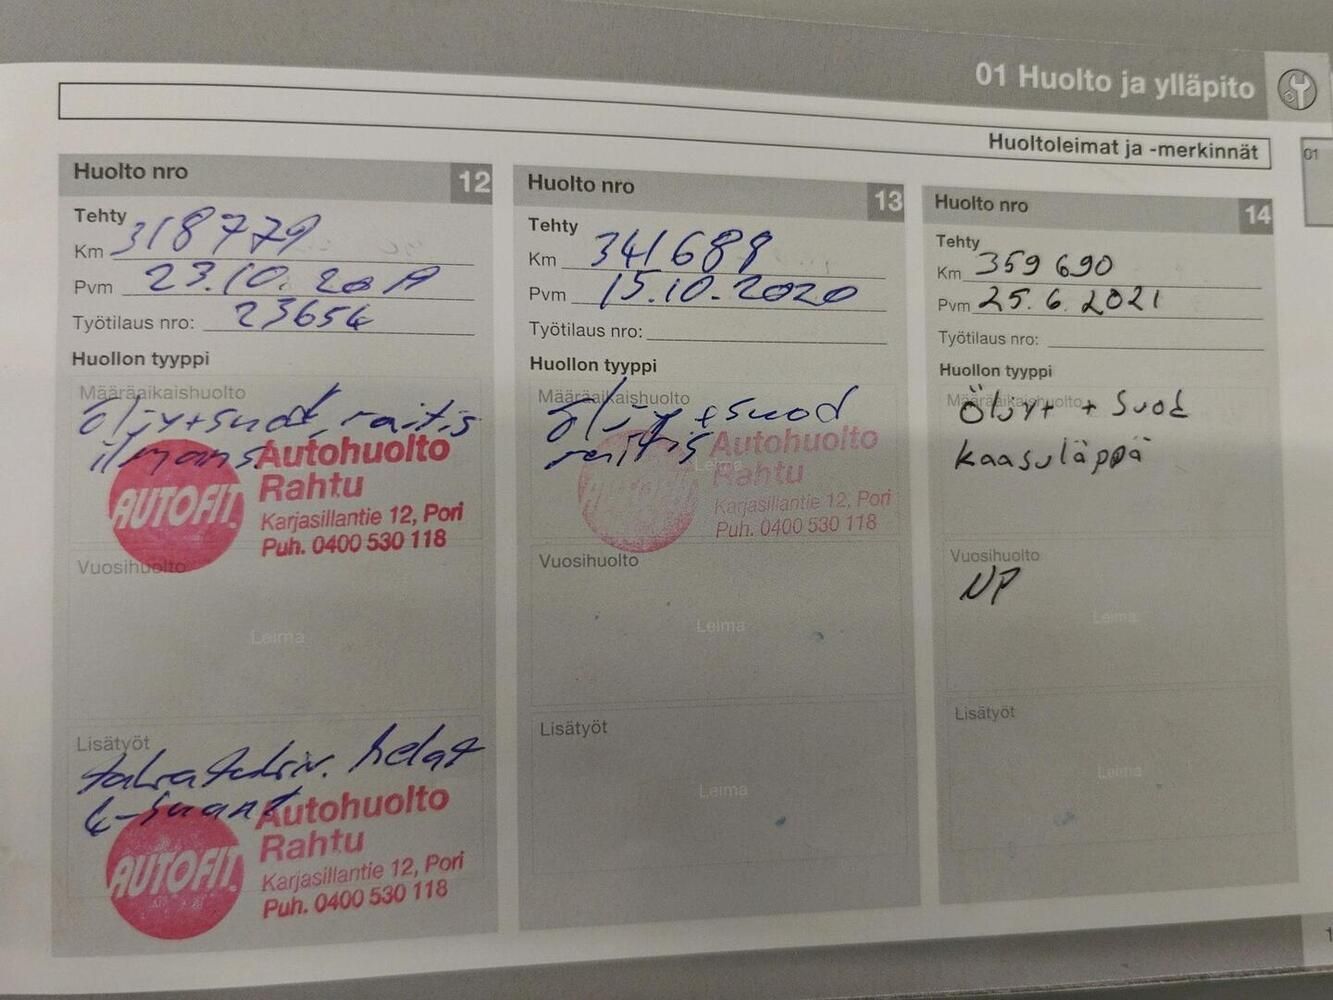 01 Huolto ja ylläpito
Huoltoleimat ja -merkinnät
01
Huolto nro 12
Tehty
Km 318779
Pvm 23.10.
Työtilaus nro: 23654
Huollon tyyppi
Määräaikaishuolto
Öljyt+suod, raitis
ilmans
AUTOFIT
Autohuolto
Rahtu
Karjasillantie 12, Pori
Puh. 0400 530 118
Vuosihuolto
Leima
Lisätyöt
helat
AUTOFIT
Autohuolto
Rahtu
Karjasillantie 12, Pori
Puh. 0400 530 118
Huolto nro 13
Tehty
Km 341689
Pvm 15.10.2020
Työtilaus nro:
Huollon tyyppi
Määräaikaishuolto
Öljyt+suod
raitis
Leima
AUTOFIT
Autohuolto
Rahtu
Karjasillantie 12, Pori
Puh. 0400 530 118
Vuosihuolto
Leima
Lisätyöt
Leima
Huolto nro 14
Tehty
Km 359 690
Pvm 25.6.2021
Työtilaus nro:
Huollon tyyppi
Määräaikaishuolto
Öljyt + suod
kaasuläppä
Vuosihuolto
NP
Leima
Lisätyöt
Leima